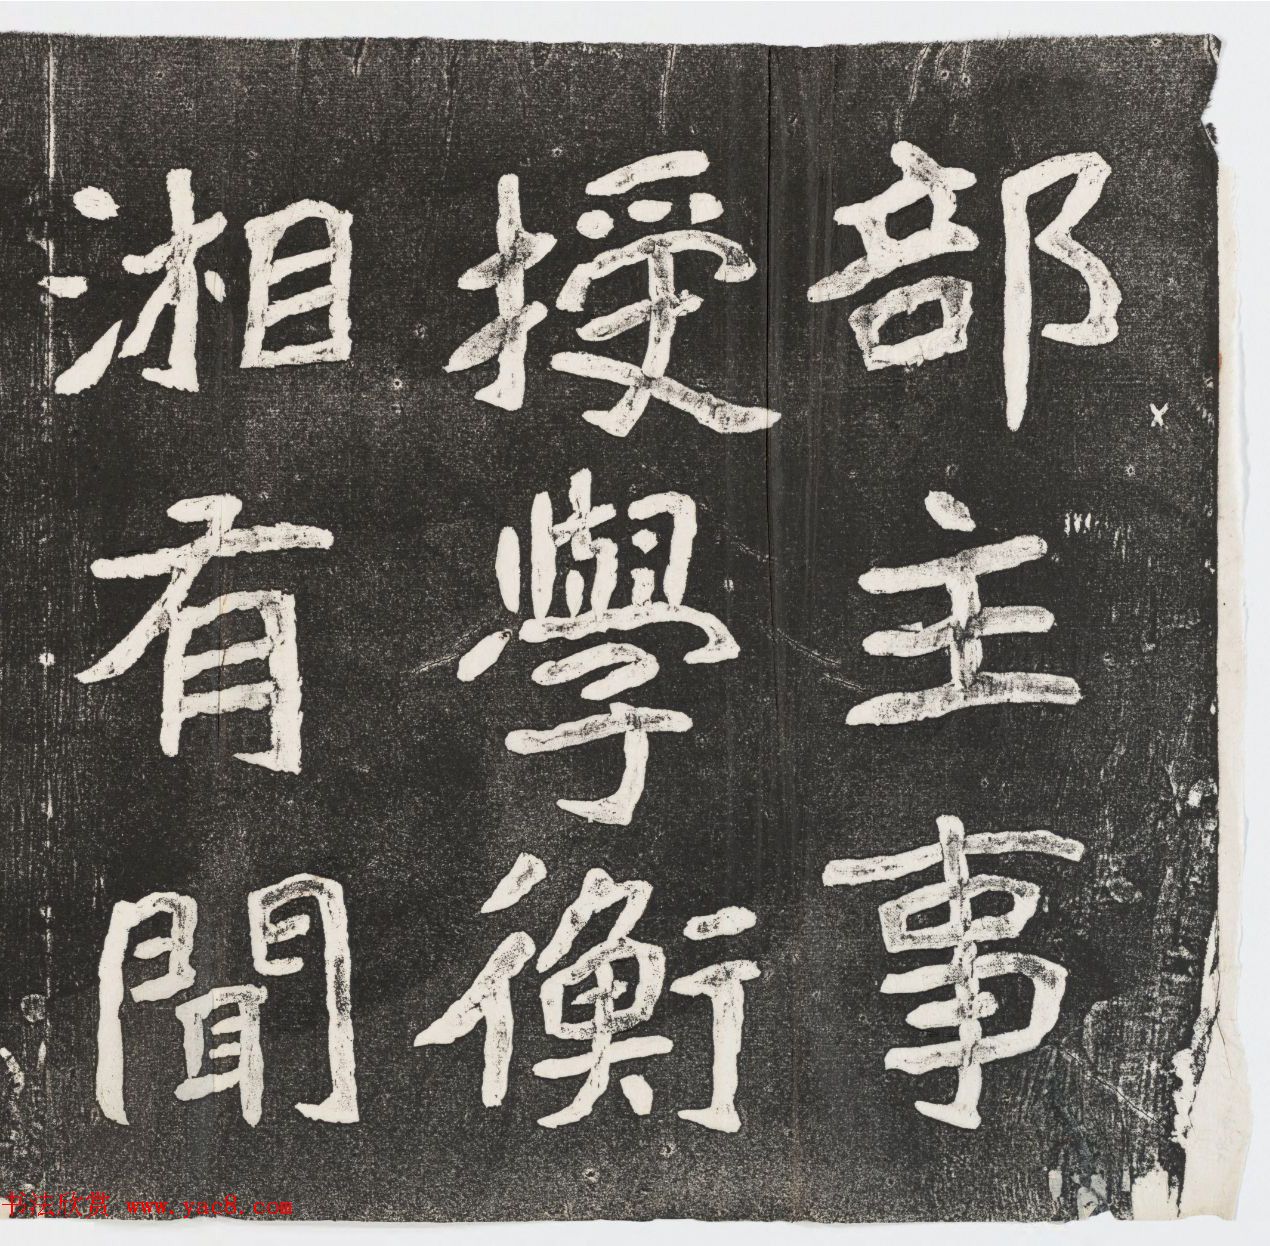 部主事
授學衡
湘有聞
书法欣赏 www.yac8.com